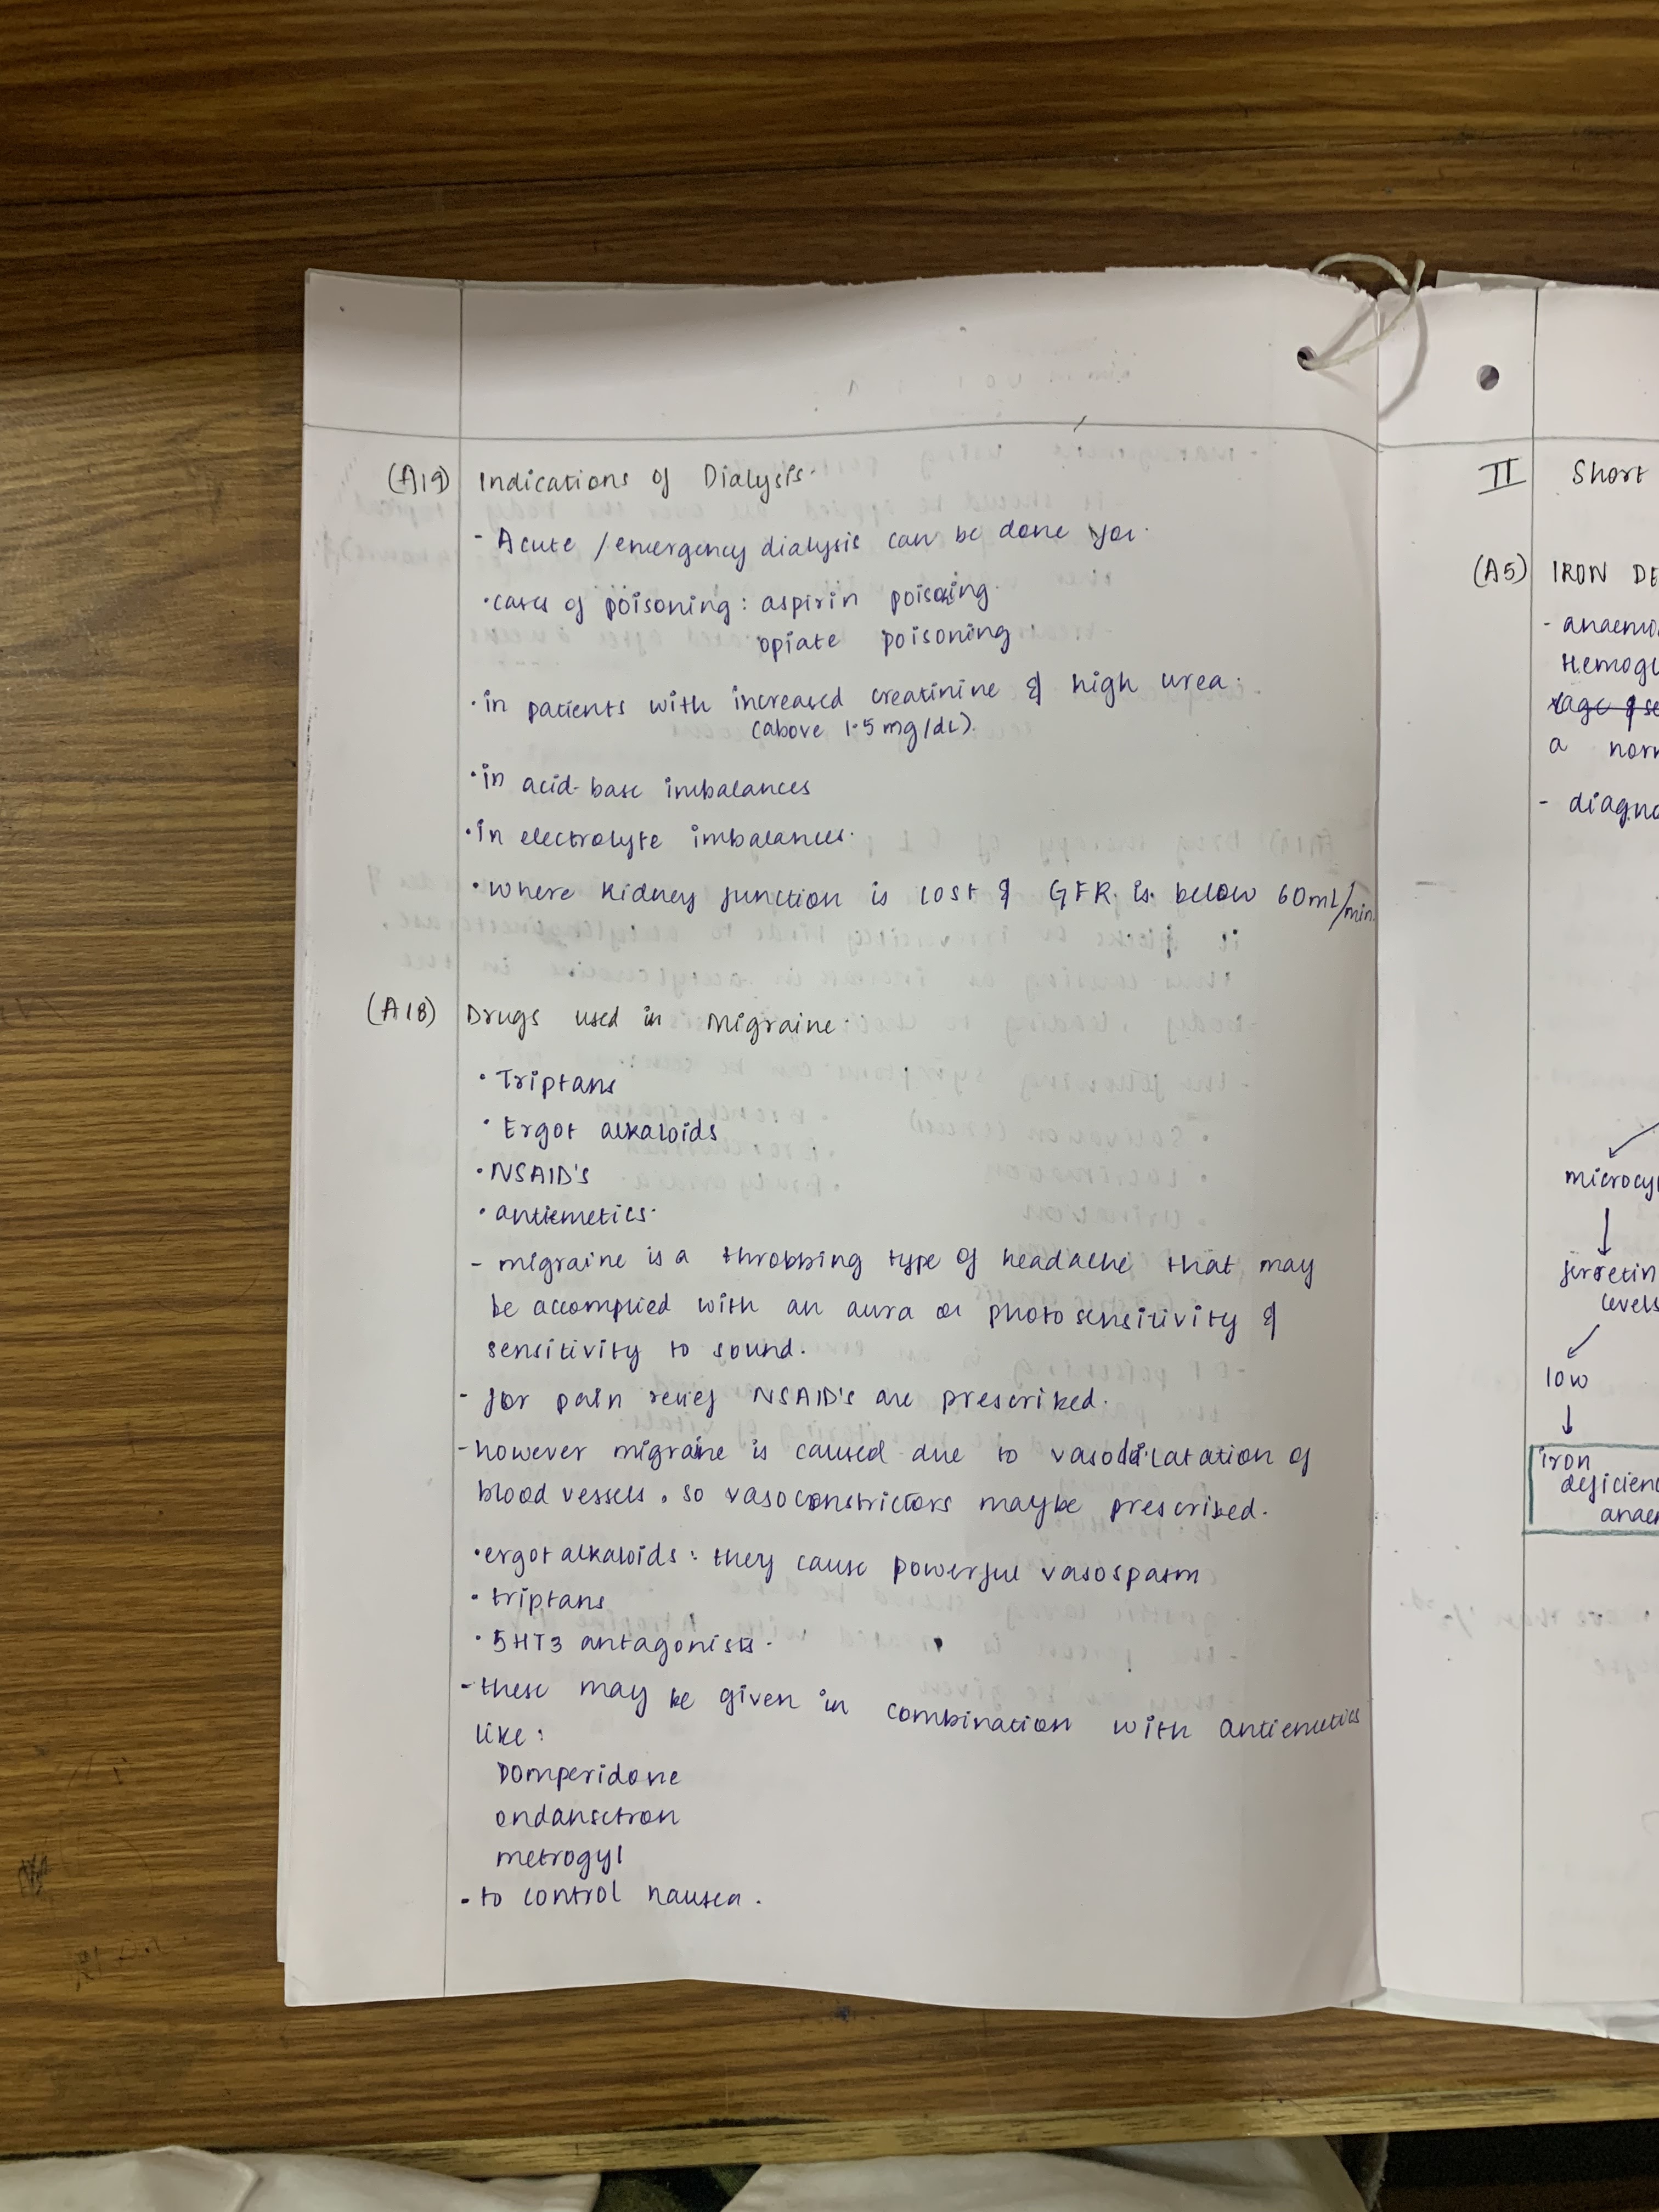 (A19) Indications of Dialysis.
- Acute / emergency dialysis can be done for.
• cases of poisoning : aspirin poisoing.
opiate poisoning.
• in patients with increased creatinine & high urea.
(above 1.5 mg/dL).
• in acid-base imbalances
• in electrolyte imbalances.
• where kidney function is lost & GFR. is. below 60ml/min.
(A18) Drugs used in Migraine.
• Triptans
• Ergot alkaloids
• NSAID's
• antiemetics.
- migraine is a throbbing type of headache that may
be accompied with an aura or photosensitivity &
sensitivity to sound.
- for pain relief NSAID's are prescribed.
- however migraine is caused due to vasodilatation of
blood vessels, so vasoconstrictors maybe prescribed.
• ergot alkaloids : they cause powerful vasospasm
• triptans
• 5HT3 antagonists.
- these may be given in combination with antiemetics
like :
Domperidone
ondansetron
metrogyl
- to control nausea.
II Short
(A5) IRON DE
- anaem
Hemogl
a norm
- diagno
microcy
ferretin
levels
low
iron
deficien
anae